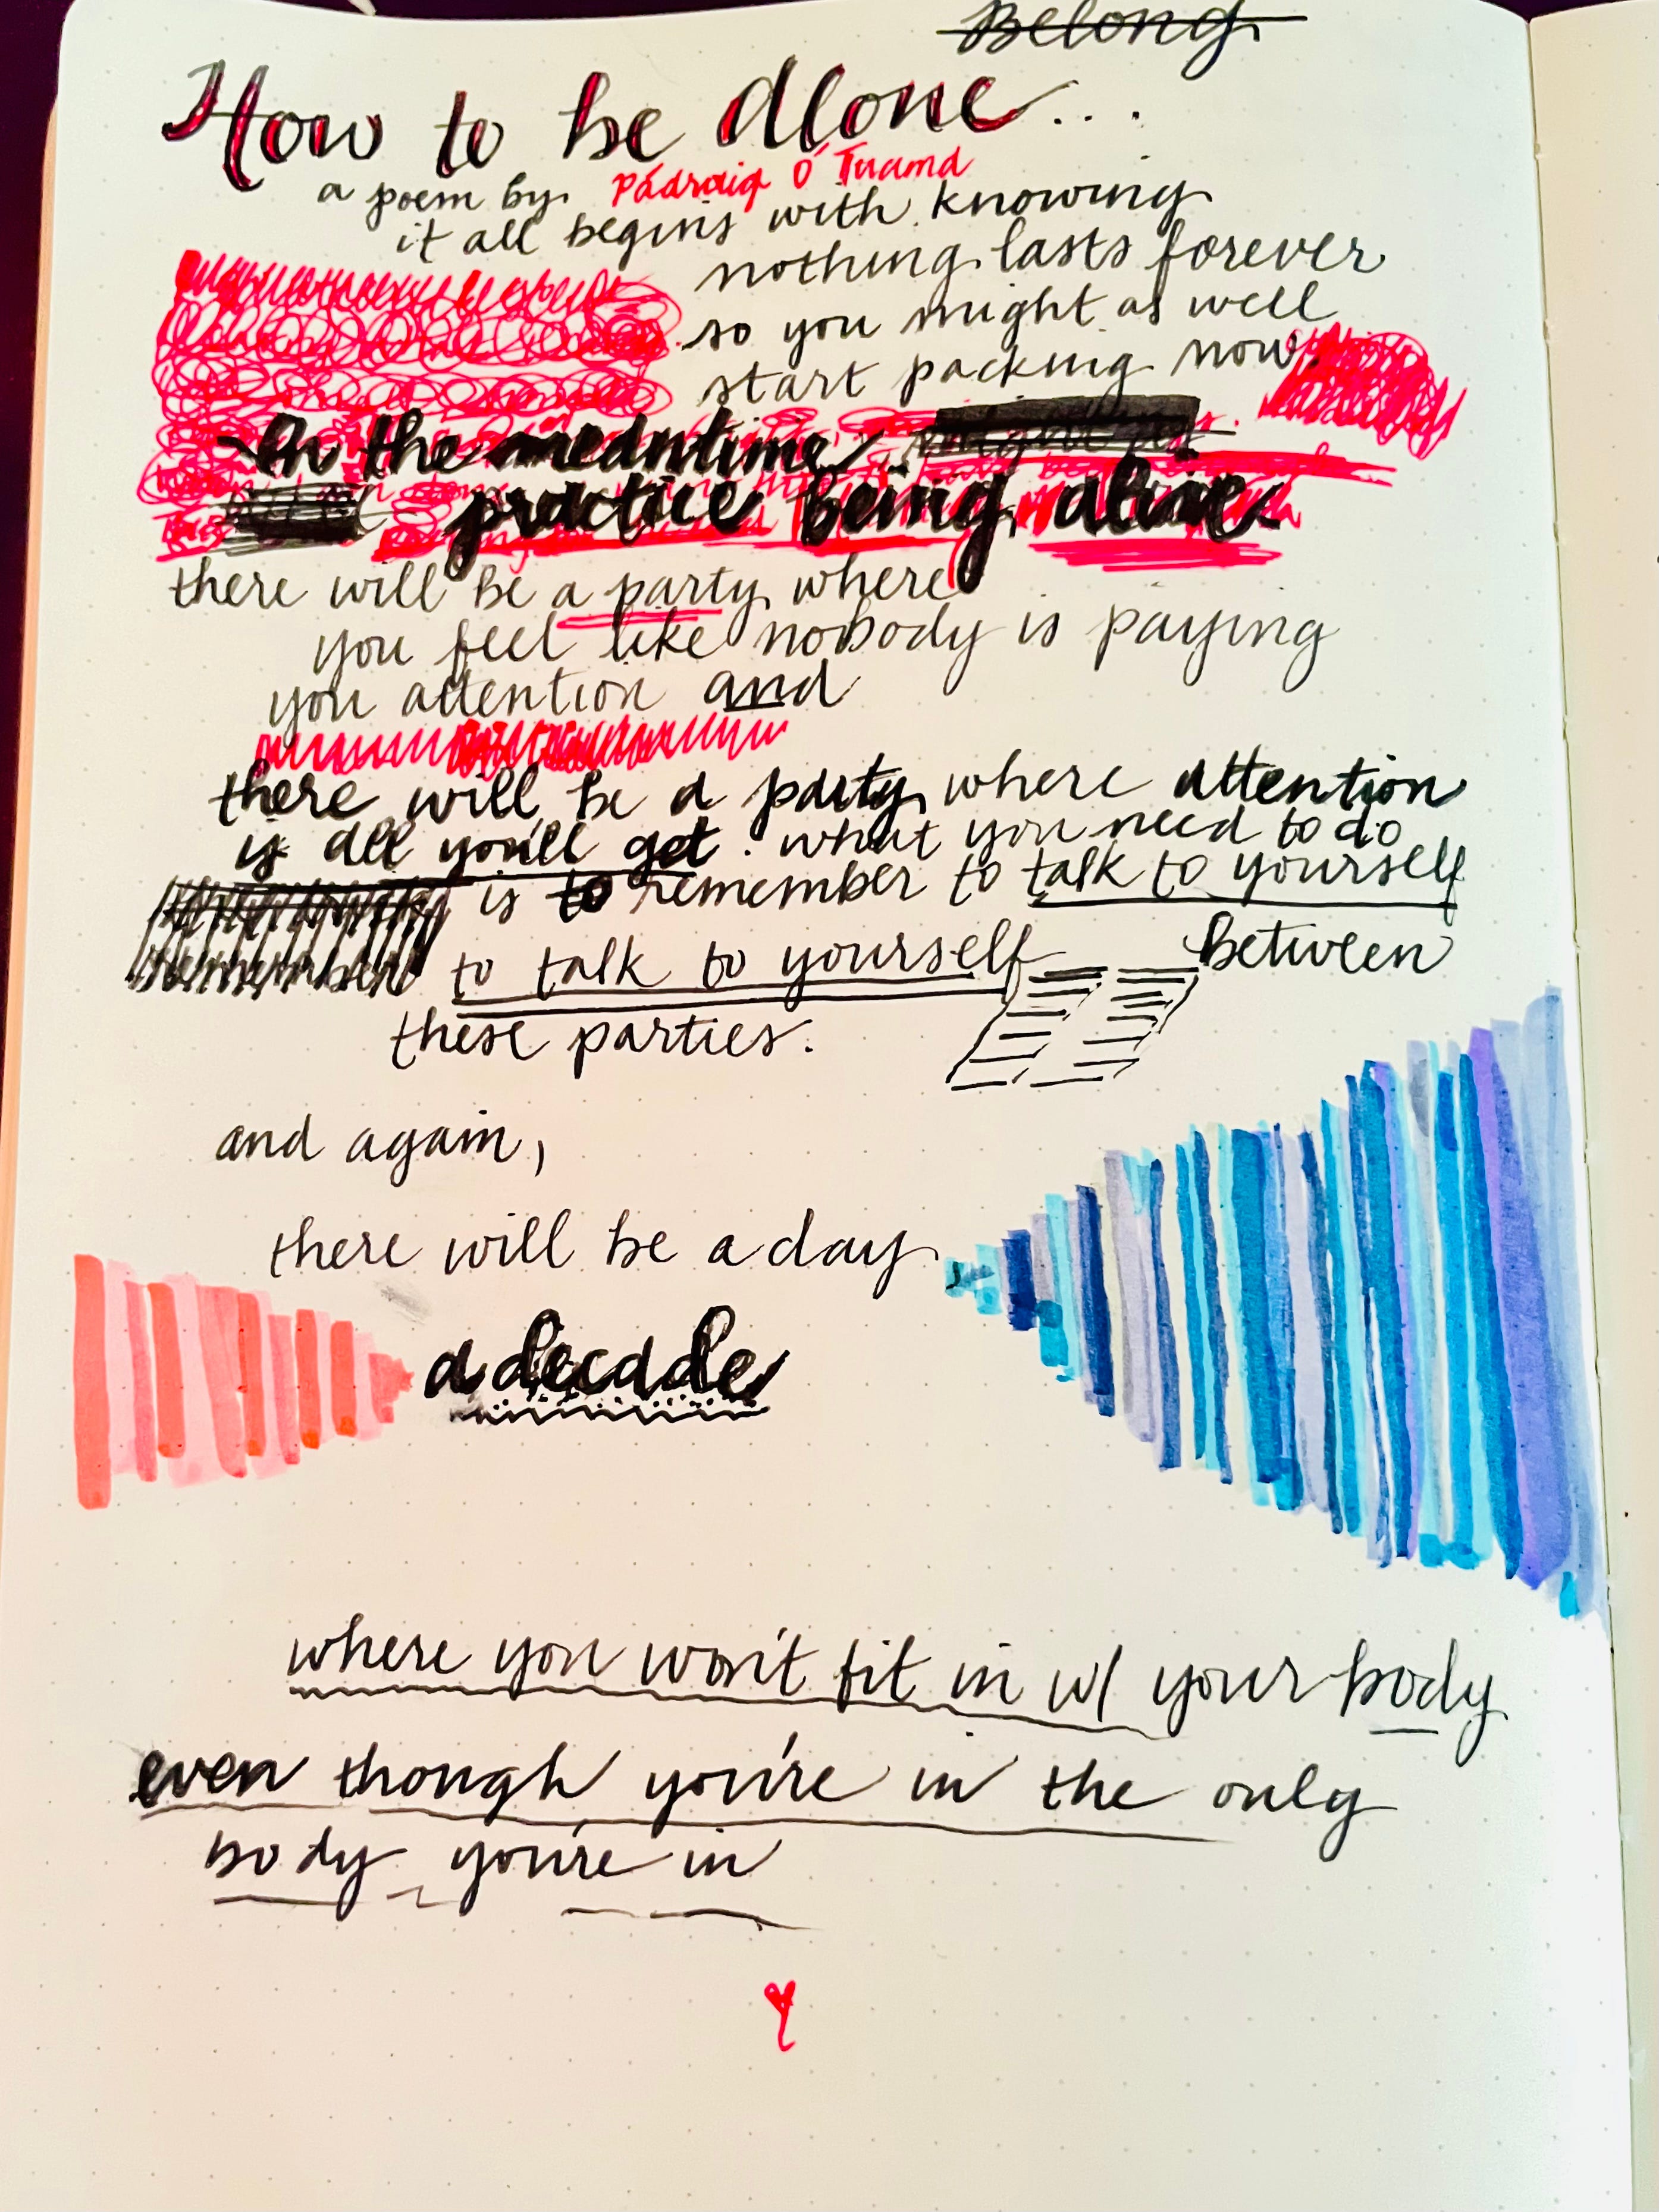 Belong
How to be Alone...
a poem by: Pádraig Ó Tuama
it all begins with knowing
nothing lasts forever
so you might as well
start packing now
In the meantime,
practice being alive.
there will be a party where
you feel like nobody is paying
you attention and
there will be a party where attention
is all you'll get. what you need to do
is to remember to talk to yourself
remember to talk to yourself between
these parties.
and again,
there will be a day
a decade
where you won't fit in w/ your body
even though you're in the only
body you're in